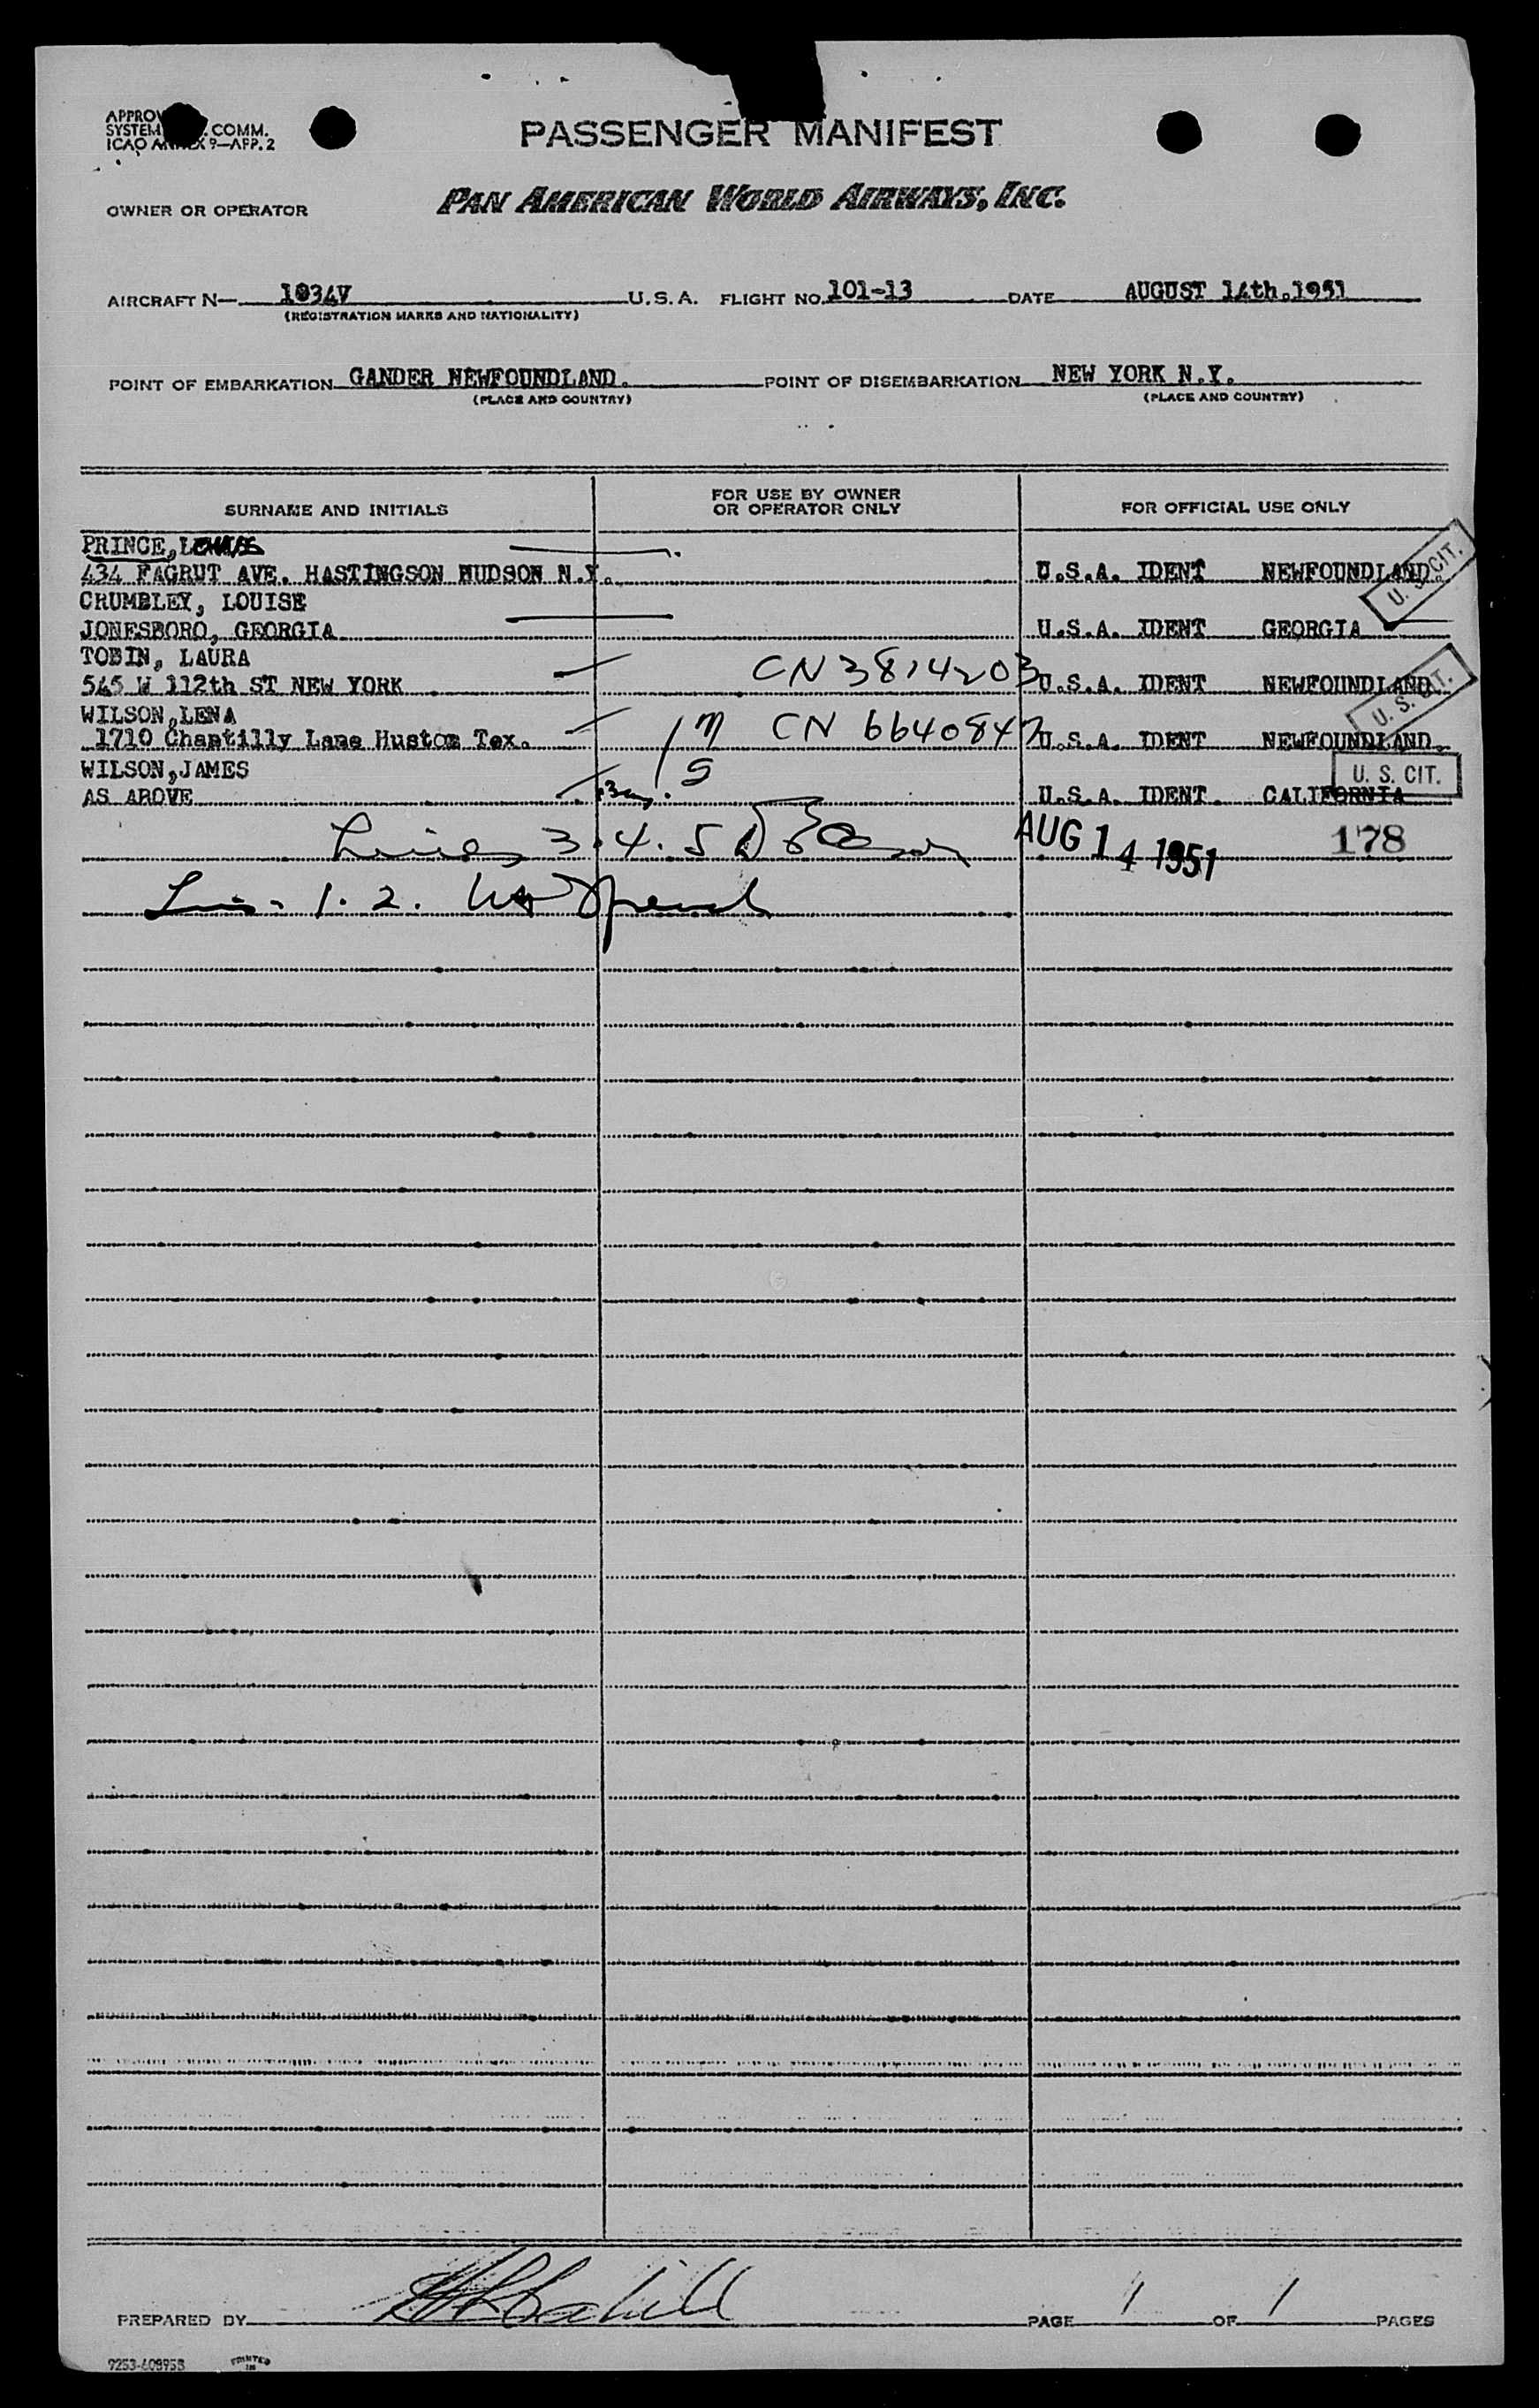 PASSENGER MANIFEST
COMM.
9—APP. 2
OWNER OR OPERATOR PAN AMERICAN WORLD AIRWAYS, INC.
AIRCRAFT N— 1034V U.S.A. FLIGHT NO. 101-13 DATE AUGUST 14th.1951
(REGISTRATION MARKS AND NATIONALITY)
POINT OF EMBARKATION GANDER NEWFOUNDLAND. POINT OF DISEMBARKATION NEW YORK N.Y.
(PLACE AND COUNTRY) (PLACE AND COUNTRY)
SURNAME AND INITIALS FOR USE BY OWNER OR OPERATOR ONLY FOR OFFICIAL USE ONLY
PRINCE,
434 FAGRUT AVE. HASTINGSON HUDSON N.Y. U.S.A. IDENT NEWFOUNDLAND. U. S. CIT.
CRUMBLEY, LOUISE
JONESBORO, GEORGIA U.S.A. IDENT GEORGIA
TOBIN, LAURA
545 W 112th ST NEW YORK CN 3814203 U.S.A. IDENT NEWFOUNDLAND U. S. CIT.
WILSON,LENA
1710 Chantilly Lane Huston Tex. M CN 6640847 U.S.A. IDENT NEWFOUNDLAND.
WILSON,JAMES S U. S. CIT.
AS ABOVE U.S.A. IDENT. CALIFORNIA
Lines 3.4.5 AUG 14 1951 178
1. 2.
PREPARED BY PAGE 1 OF 1 PAGES
PRINTED
IN